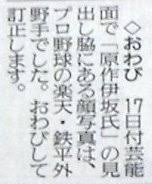 ◇おわび　17日付芸能
面で「原作伊坂氏」の見
出し脇にある顔写真は、
プロ野球の楽天・鉄平外
野手でした。おわびして
訂正します。